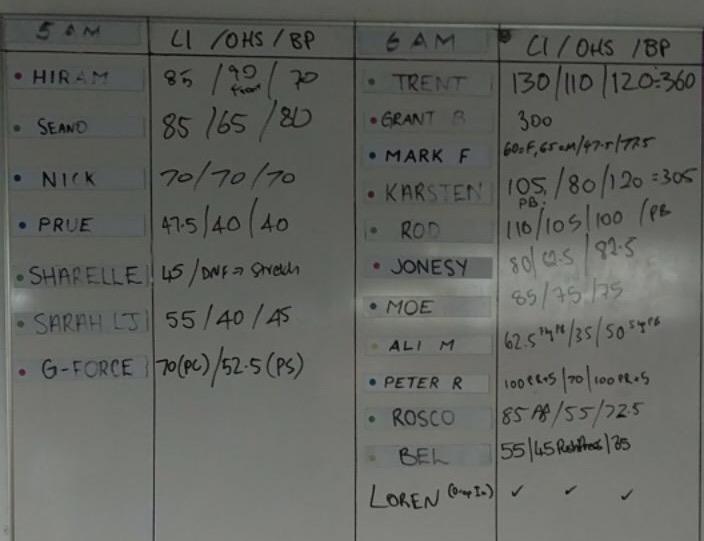 5 AM CL / OHS / BP
HIRAM 85 / 90 / 70
Front
SEANO 85 / 65 / 80
NICK 70 / 70 / 70
PRUE 47.5 / 40 / 40
SHARELLE 45 / DNF => Stretch
SARAH LJ 55 / 40 / 45
G-FORCE 70 (PC) / 52.5 (PS)
6 AM CJ / OHS / BP
TRENT 130 / 110 / 120 = 360
GRANT B 300
MARK F 60=F, 65=M / 47.5 / 77.5
KARSTEN 105 / 80 / 120 = 305
PB
ROD 110 / 105 / 100 / PB
JONESY 80 / 62.5 / 82.5
MOE 85 / 75 / 75
ALI M 62.5 / 35 / 50
PETER R 100 PR+5 / 70 / 100 PR+5
ROSCO 85 PB / 55 / 72.5
BEL 55 / 45 / 35
LOREN (Drop In) ✓ ✓ ✓